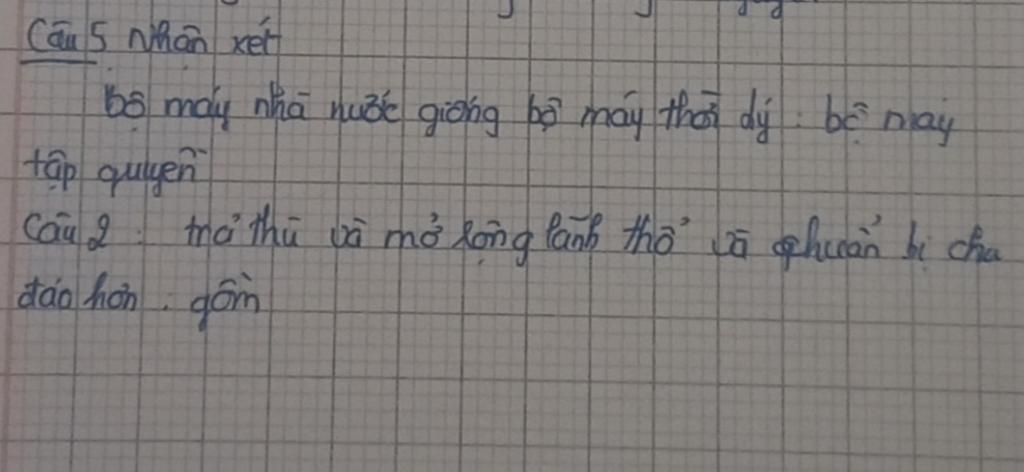 Câu 5 Nhận xét
bộ máy nhà nước giống bộ máy thời dý : bộ máy
tập quyền
Câu 2 : trả thù và mở rộng lãnh thổ và chuẩn bị chu
đáo hơn . gồm